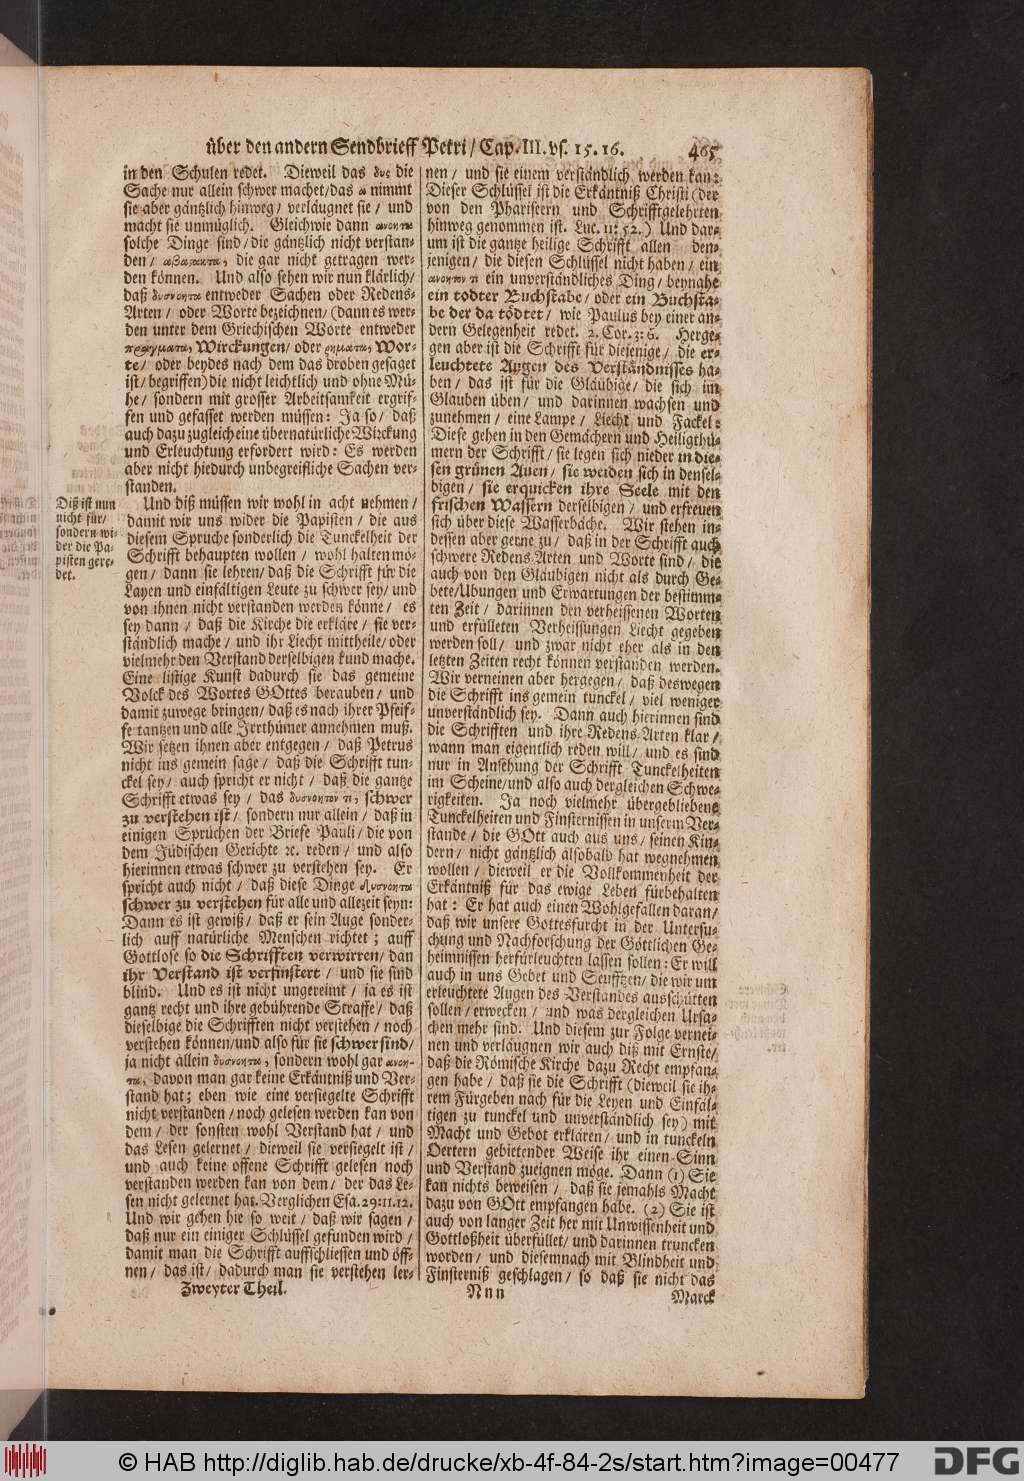 über den andern Sendbrieff Petri / Cap. III. vs. 15. 16. 465
in den Schulen redet. Dieweil das δυς die
Sache nur allein schwer machet/das α nimmt
sie aber gäntzlich hinweg / verläugnet sie / und
macht sie unmüglich. Gleichwie dann ανοητα
solche Dinge sind/die gäntzlich nicht verstan-
den / αβαρακτα, die gar nicht getragen wer-
den können. Und also sehen wir nun klärlich/
daß δυσνοητα entweder Sachen oder Redens-
Arten / oder Worte bezeichnen/ (dann es wer-
den unter dem Griechischen Worte entweder
πραγματα, Wirckungen/ oder ρηματα, Wor-
te/ oder beydes nach dem das droben gesaget
ist/ begriffen) die nicht leichtlich und ohne Mü-
he/ sondern mit grosser Arbeitsamkeit ergrif-
fen und gefasset werden müssen: Ja so / daß
auch dazu zugleich eine übernatürliche Wirckung
und Erleuchtung erfordert wird: Es werden
aber nicht hiedurch unbegreifliche Sachen ver-
standen.
Diß ist nun
nicht für/
sondern wi-
der die Pa-
pisten gere-
det.
Und diß müssen wir wohl in acht nehmen /
damit wir uns wider die Papisten / die aus
diesem Spruche sonderlich die Tunckelheit der
Schrifft behaupten wollen / wohl halten mö-
gen / dann sie lehren/ daß die Schrifft für die
Layen und einfältigen Leute zu schwer sey/ und
von ihnen nicht verstanden werden könne / es
sey dann / daß die Kirche die erkläre / sie ver-
ständlich mache / und ihr Liecht mittheile/ oder
vielmehr den Verstand derselbigen kund mache.
Eine listige Kunst dadurch sie das gemeine
Volck des Wortes GOttes berauben / und
damit zuwege bringen/ daß es nach ihrer Pfeif-
fe tantzen und alle Irrthümer annehmen muß.
Wir setzen ihnen aber entgegen / daß Petrus
nicht ins gemein sage / daß die Schrifft tun-
ckel sey / auch spricht er nicht / daß die gantze
Schrifft etwas sey / das δυσνοητον τι, schwer
zu verstehen ist / sondern nur allein / daß in
einigen Sprüchen der Briefe Pauli / die von
dem Jüdischen Gerichte ꝛc. reden / und also
hierinnen etwas schwer zu verstehen sey. Er
spricht auch nicht / daß diese Dinge δυσνοητα
schwer zu verstehen für alle und allezeit seyn:
Dann es ist gewiß / daß er sein Auge sonder-
lich auff natürliche Menschen richtet; auff
Gottlose so die Schrifften verwirren/ dan
ihr Verstand ist verfinstert / und sie sind
blind. Und es ist nicht ungereimt / ja es ist
gantz recht und ihre gebührende Straffe/ daß
dieselbige die Schrifften nicht verstehen / noch
verstehen können/und also für sie schwer sind/
ja nicht allein δυσνοητα, sondern wohl gar ανοη-
τα, davon man gar keine Erkäntniß und Ver-
stand hat; eben wie eine versiegelte Schrifft
nicht verstanden / noch gelesen werden kan von
dem / der sonsten wohl Verstand hat / und
das Lesen gelernet / dieweil sie versiegelt ist /
und auch keine offene Schrifft gelesen noch
verstanden werden kan von dem / der das Le-
sen nicht gelernet hat. Verglichen Esa. 29: 11. 12.
Und wir gehen hie so weit / daß wir sagen /
daß nur ein einiger Schlüssel gefunden wird /
damit man die Schrifft auffschliessen und öff-
nen / das ist / dadurch man sie verstehen ler-
nen / und sie einem verständlich werden kan:
Dieser Schlüssel ist die Erkäntniß Christi (der
von den Phariseern und Schrifftgelehrten
hinweg genommen ist. Luc. 11: 52.) Und dar-
um ist die gantze heilige Schrifft allen den-
jenigen / die diesen Schlüssel nicht haben / ein
ανοητον τι ein unverständliches Ding / beynahe
ein todter Buchstabe / oder ein Buchsta-
be der da tödtet / wie Paulus bey einer an-
dern Gelegenheit redet. 2. Cor. 3: 6. Herge-
gen aber ist die Schrifft für diejenige / die er-
leuchtete Augen des Verständnisses ha-
ben / das ist für die Gläubige / die sich im
Glauben üben / und darinnen wachsen und
zunehmen / eine Lampe / Liecht und Fackel:
Diese gehen in den Gemächern und Heiligthü-
mern der Schrifft / sie legen sich nieder in die-
sen grünen Auen / sie weiden sich in densel-
bigen / sie erquicken ihre Seele mit den
frischen Wassern derselbigen / und erfreuen
sich über diese Wasserbäche. Wir stehen in-
dessen aber gerne zu / daß in der Schrifft auch
schwere Redens-Arten und Worte sind / die
auch von den Gläubigen nicht als durch Ge-
bete/Übungen und Erwartungen der bestimm-
ten Zeit / darinnen den verheissenen Worten
und erfülleten Verheissungen Liecht gegeben
werden soll / und zwar nicht eher als in den
letzten Zeiten recht können verstanden werden.
Wir verneinen aber hergegen / daß deswegen
die Schrifft ins gemein tunckel / viel weniger
unverständlich sey. Dann auch hierinnen sind
die Schrifften und ihre Redens-Arten klar /
wann man eigentlich reden will / und es sind
nur in Ansehung der Schrifft Tunckelheiten
im Scheine/und also auch dergleichen Schwe-
rigkeiten. Ja noch vielmehr übergebliebene
Tunckelheiten und Finsternissen in unserm Ver-
stande / die GOtt auch aus uns / seinen Kin-
dern / nicht gäntzlich alsobald hat wegnehmen
wollen / dieweil er die Vollkommenheit der
Erkäntniß für das ewige Leben fürbehalten
hat: Er hat auch einen Wohlgefallen daran/
daß wir unsere Gottesfurcht in der Untersu-
chung und Nachforschung der Göttlichen Ge-
heimnissen herfürleuchten lassen sollen: Er will
auch in uns Gebet und Seufftzen/ die wir um
erleuchtete Augen des Verstandes ausschütten
sollen / erwecken / und was dergleichen Ursa-
chen mehr sind. Und diesem zur Folge vernei-
nen und verläugnen wir auch diß mit Ernste/
daß die Römische Kirche dazu Recht empfan-
gen habe / daß sie die Schrifft (dieweil sie ih-
rem Fürgeben nach für die Leyen und Einfäl-
tigen zu tunckel und unverständlich sey) mit
Macht und Gebot erklären / und in tunckeln
Oertern gebietender Weise ihr einen Sinn
und Verstand zueignen möge. Dann (1) Sie
kan nichts beweisen / daß sie jemahls Macht
dazu von GOtt empfangen habe. (2) Sie ist
auch von langer Zeit her mit Unwissenheit und
Gottloßheit überfüllet/ und darinnen truncken
worden / und diesemnach mit Blindheit und
Finsterniß geschlagen / so daß sie nicht das
Zweyter Theil. Nnn Marck
© HAB http://diglib.hab.de/drucke/xb-4f-84-2s/start.htm?image=00477
DFG